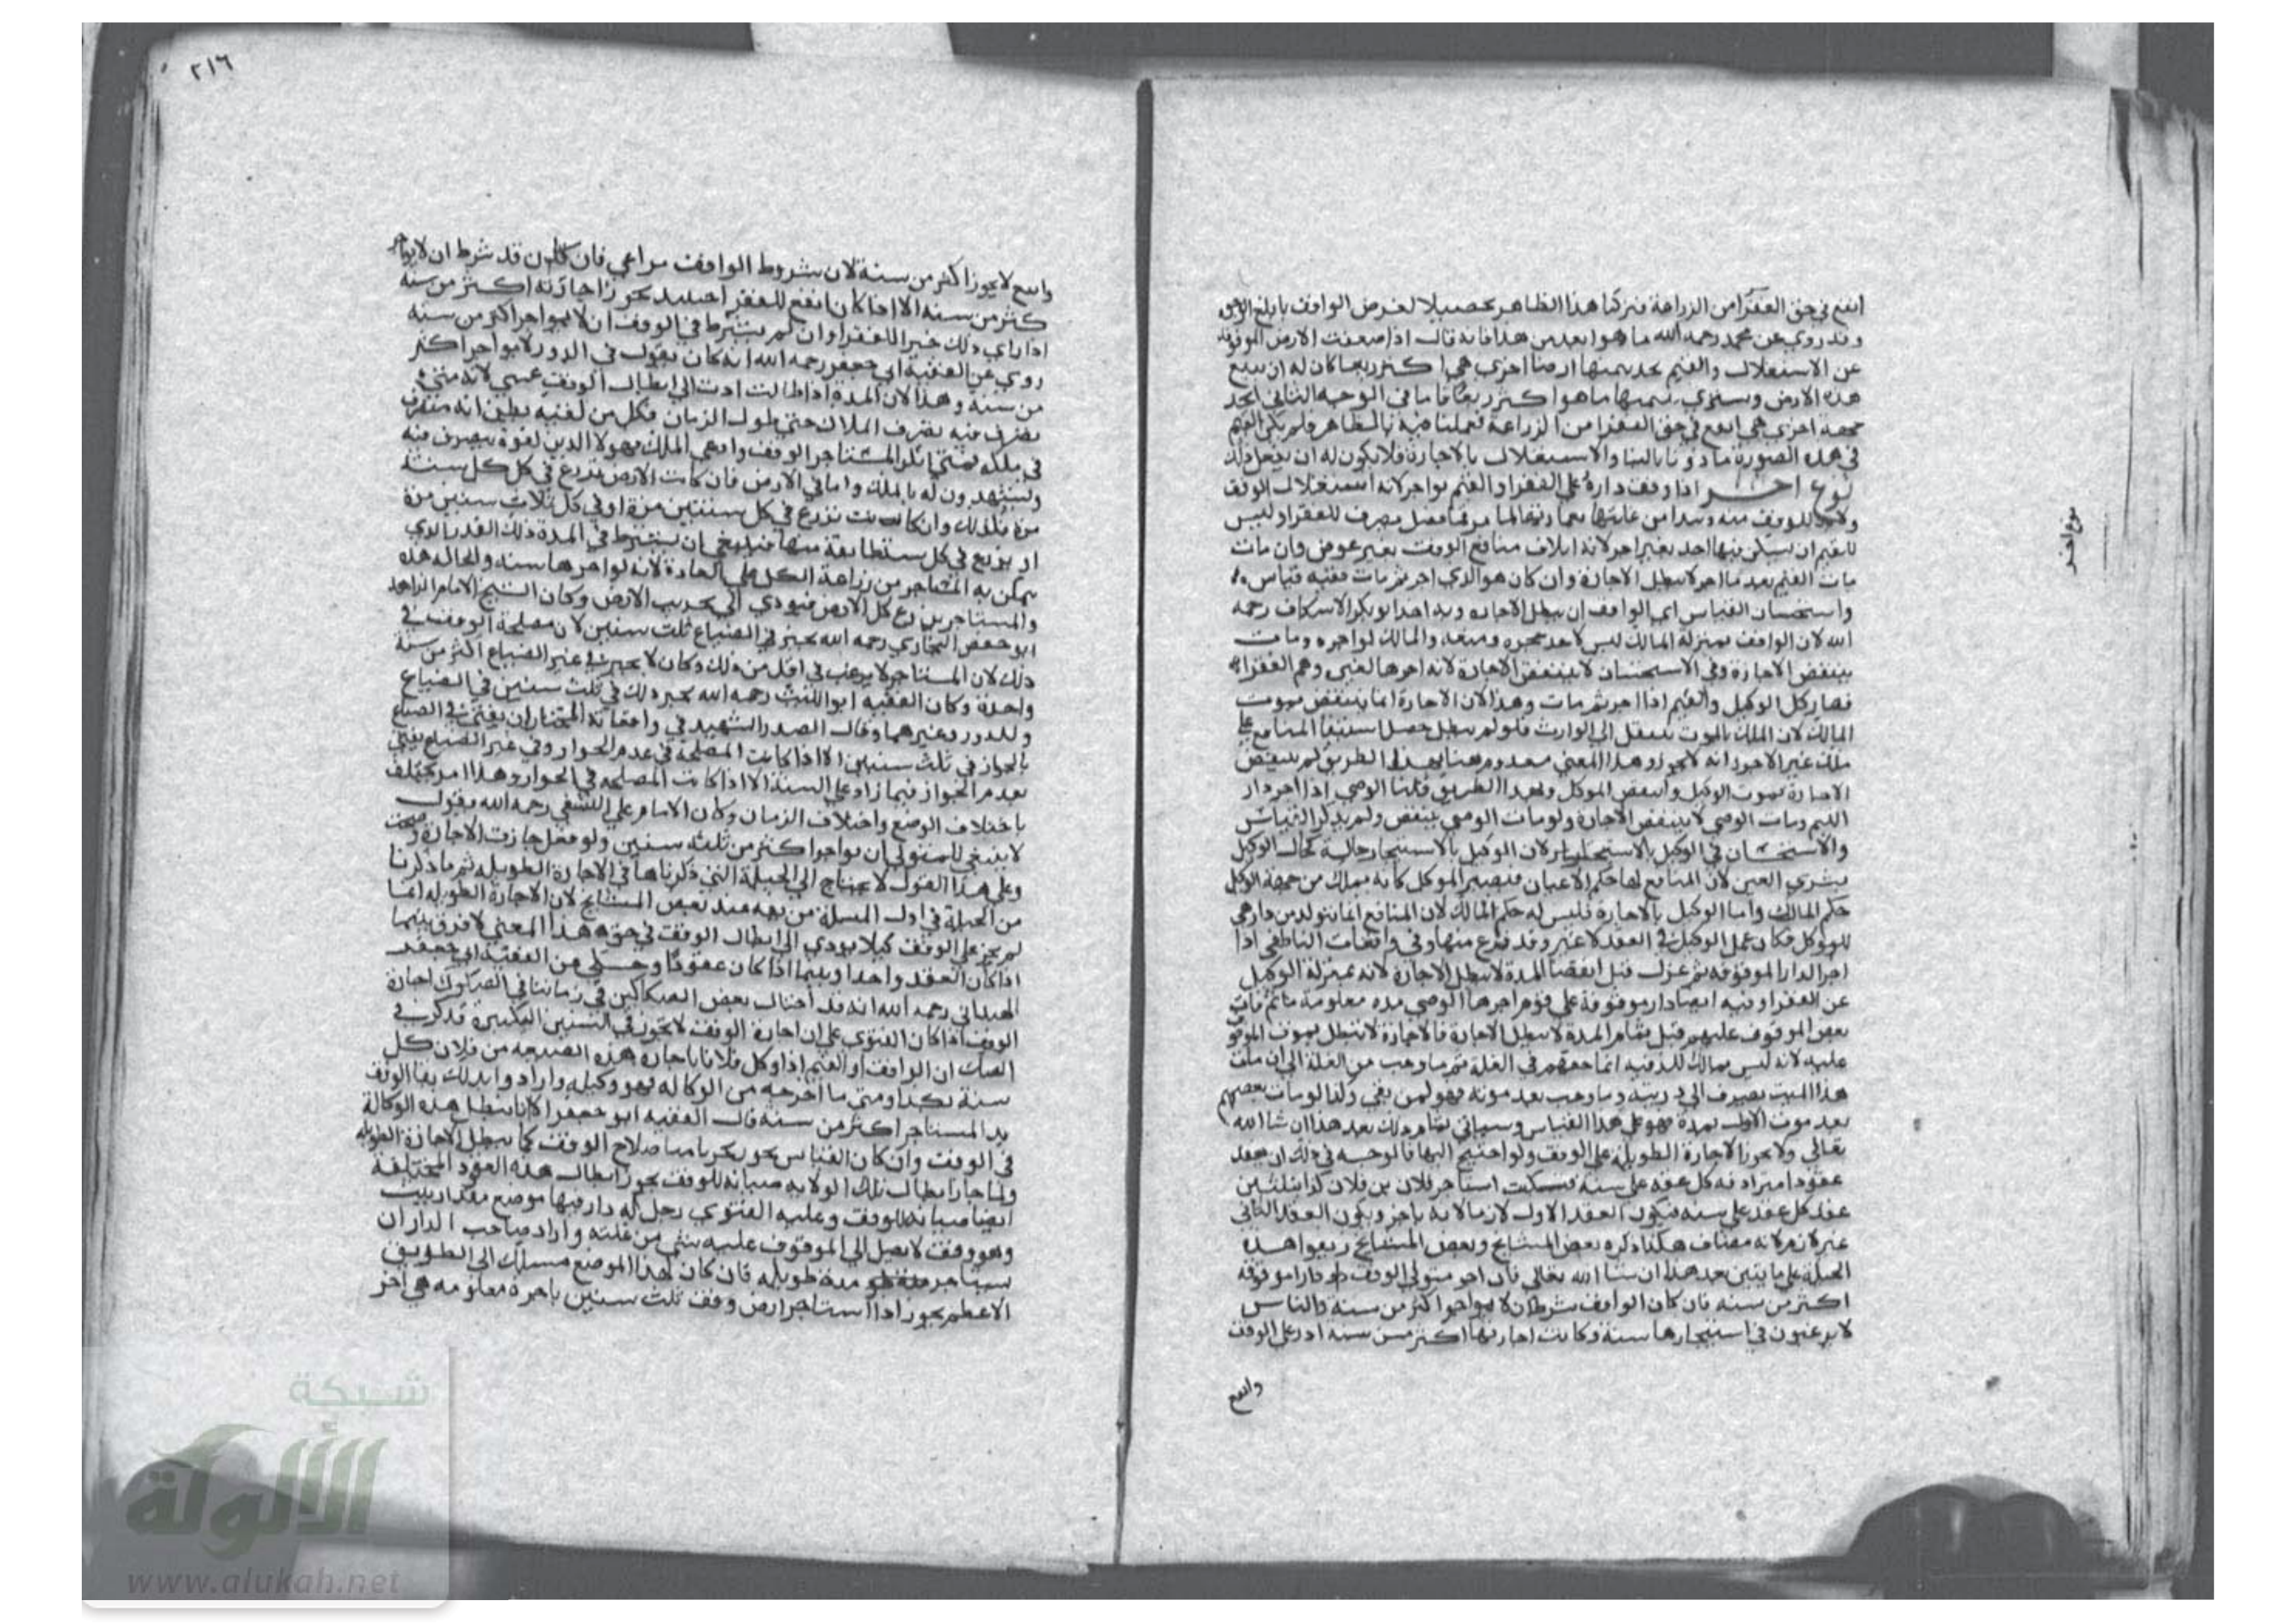 انفع في حق الفقرا من الزراعة فتركنا هذا الظاهر تحصيلا لغرض الواقف بابلغ الوجوه
وقد روي عن محمد رحمه الله ما هو ابعد من هذا فانه قال اذا ضعفت الارض الموقوفة
عن الاستغلال والقيم يجد بثمنها ارضا اخري هي اكثر ريعا كان له ان يبيع
هذه الارض ويشتري بثمنها ما هو اكثر ريعا فاما في الوجه الثاني
جهة اخري هي انفع في حق الفقرا من الزراعة فعملنا فيه بالظاهر فلم يكن القيم
في هذه الصورة ماذونا بالبنا والاستغلال بالاجارة فلا يكون له ان يفعل ذلك
نوع اخر اذا وقف داره علي الفقرا والقيم يواجر لانه استغلال الوقف
للوقف منه ويبدا من غلتها بعمارتها فضل يصرف للفقرا وليس
للقيم ان يسكن فيها احد بغير اجر لانه اتلاف منافع الوقف بغير عوض وان مات
مات القيم بعد ما اجر لا تبطل الاجارة وان كان هو الذي اجر ثم مات ففيه قياس
واستحسان القياس اي الواقف ان تبطل الاجاره وبه اخذ ابو بكر الاسكاف رحمه
الله لان الواقف بمنزلة المالك ليس لاحد حجره ومنعه والمالك لو اجره ومات
ينتقض الاجارة وفي الاستحسان لا ينتقض الاجارة لانه اجرها لغيره وهم الفقرا
فصار كل الوكيل والقيم اذا اجر ثم مات وهذا لان الاجارة انما ينتقض بموت
المالك لان الملك بالموت ينتقل الي الوارث فلو لم تبطل حصل استيفا المنافع علي
ملك غير الاجر وانه لا يجوز وهذا المعني معدوم هنا وبهذا الطريق لم ينتقض
الاجارة بموت الوكيل وانتقض الموكل وبهذا الطريق قلنا الوصي اذا اجر دار
اليتيم ومات الوصي لا ينتقض الاجارة ولو مات الوصي ينتقض ولم يذكر القياس
والاستحسان في الوكيل بالاستيجار لان الوكيل بالاستيجار حاله كحال الوكيل
بشري العين لان المنافع لها حكم الاعيان فيصير الموكل كانه يملك من جهة الوكيل
حكم المالك واما الوكيل بالاجارة فليس له حكم المالك لان المنافع انما يتولد من دار هي
للموكل فكان عمل الوكيل في العقد لا غير وقد فرغ منها وفي واقعات الناطفي اذا
اجر الدار الموقوفه ثم عزل قبل انقضا المدة لا تبطل الاجارة لانه بمنزلة الوكيل
عن الفقرا وفيه ايضا دار موقوفة علي قوم اجرها الوصي مده معلومة ثم مات
بعض الموقوف عليهم قبل تمام المدة لا تبطل الاجارة فالاجارة لا تبطل بموت الموقوف
عليه لانه ليس بمالك للرقبه انما حقهم في الغلة ثم ما وجب من الغلة الي ان مات
هذا الميت يصرف الي ورثته وما وجب بعد موته فهو لمن بقي وكذا لو مات بعضهم
بعد موت الاول بمدة فهو علي هذا القياس وسياتي تمام ذلك بعد هذا ان شا الله
تعالي ولا يجوز الاجارة الطويلة علي الوقف ولو احتيج اليها فالوجه في ذلك ان يعقد
عقودا مترادفه كل عقد علي سنة فيكتب استاجر فلان بن فلان كذا بثلثين
عقد كل عقد علي سنه فيكون العقد الاول لازما لانه ناجز ويكون العقد الثاني
غير لازم لانه مضاف هكذا ذكره بعض المشايخ وبعض المشايخ زيفوا هذه
الحيلة علي ما يتبين بعد هذا ان شا الله تعالي فان اجر متولي الوقف دارا موقوفه
اكثر من سنه فان كان الواقف شرط ان لا يواجر اكثر من سنة والناس
لا يرغبون في استيجارها سنة وكانت اجارتها اكثر من سنه ادر علي الوقف
وانفع
نوع اخر
٢١٦
وانفع لا يجوز اكثر من سنة لان شروط الواقف يراعي فان كان قد شرط ان لا يواجر
كثر من سنه الا اذا كان انفع للفقرا حينيذ يجوز اجارته اكثر من سنه
اذا راي ذلك خيرا للفقرا وان لم يشترط في الوقف ان لا يواجر اكثر من سنه
روي عن الفقيه ابي جعفر رحمه الله انه كان يقول في الدور لا يواجر اكثر
من سنه وهذا لان المدة اذا طالت ادت الي ابطال الوقف عسي لانه متي
يتصرف فيه تصرف الملاك حتي طول الزمان فكل من لقيه يظن انه متصرف
في ملكه فمتي انكر المستاجر الوقف وادعي الملك فهولا الذين لقوه يتصرف فيه
ويشهدون له بالملك واما في الارض فان كانت الارض تزرع في كل سنة
مرة فكذلك وان كانت تزرع في كل سنتين مرة او في كل ثلاث سنين مرة
او يزرع في كل سنة طايفة منها فينبغي ان يشترط في المدة ذلك القدر الذي
يتمكن به المستاجر من زراعة الكل علي العادة لانه لو اجرها سنه والحاله هذه
والمستاجر يزرع كل الارض فيودي الي تخريب الارض وكان الشيخ الامام الزاهد
ابو حفص البخاري رحمه الله يجيز في الضياع ثلث سنين لان مصلحة الوقف في
ذلك لان المستاجر لا يرغب في اقل من ذلك وكان لا يجيز في غير الضياع اكثر من سنة
واحدة وكان الفقيه ابو الليث رحمه الله يجيز ذلك في ثلث سنين في الضياع
والدور وغيرهما وقال الصدر الشهيد في واقعاته المختار ان يفتي في الضياع
بالجواز في ثلث سنين الا اذا كانت المصلحة في عدم الجواز وفي غير الضياع يفتي
بعدم الجواز فيما زاد علي السنة الا اذا كانت المصلحه في الجواز وهذا امر يختلف
باختلاف الوضع واختلاف الزمان وكان الامام علي النسفي رحمه الله يقول
لا ينبغي للمتولي ان يواجر اكثر من ثلثه سنين ولو فعل جازت الاجارة وصحت
وعلي هذا القول لا يحتاج الي الحيلة التي ذكرناها في الاجارة الطويله ثم ما ذكرنا
من الحيلة في اول المسلة من يفه عند بعض المشايخ لان الاجارة الطويله انما
لم يجز علي الوقف كيلا يودي الي ابطال الوقف في حق هذا المعني لا فرق بينهما
اذا كان العقد واحدا وبينما اذا كان عقودا وحكي عن الفقيه ابي جعفر
الهنداني رحمه الله انه قد احتال بعض الصكاكين في زماننا في الصكوك اجارة
الوقف اذا كان الفتوي علي ان اجارة الوقف لا يجوز في السنين الكثيرة فذكر في
الصك ان الواقف او القيم اذا وكل فلانا باجارة هذه الضيعه من فلان كل
سنة بكذا ومتي ما اخرجه من الوكاله فهو وكيله وارادوا بذلك بقا الوقف
يد المستاجر اكثر من سنه قال الفقيه ابو جعفر الا انا نبطل هذه الوكالة
في الوقف وان كان القياس يجوز تحريا منا صلاح الوقف كما نبطل الاجارة الطويله
ولما جاز ابطال تلك الولايه صيانه للوقف يجوز ابطال هذه العقود المختلفة
ايضا صيانه للوقف وعليه الفتوي رجل له دار فيها موضع مقدار بيت
وهو وقف لا يصل الي الموقوف عليه شي من غلته واراد صاحب الدار ان
يستاجر مدة طويله فان كان لهذا الموضع مسلك الي الطريق
الاعظم يجوز اذا استاجر ارض وقف ثلث سنين باجرة معلومه هي اجر
شبكة
الألوكة
www.alukah.net